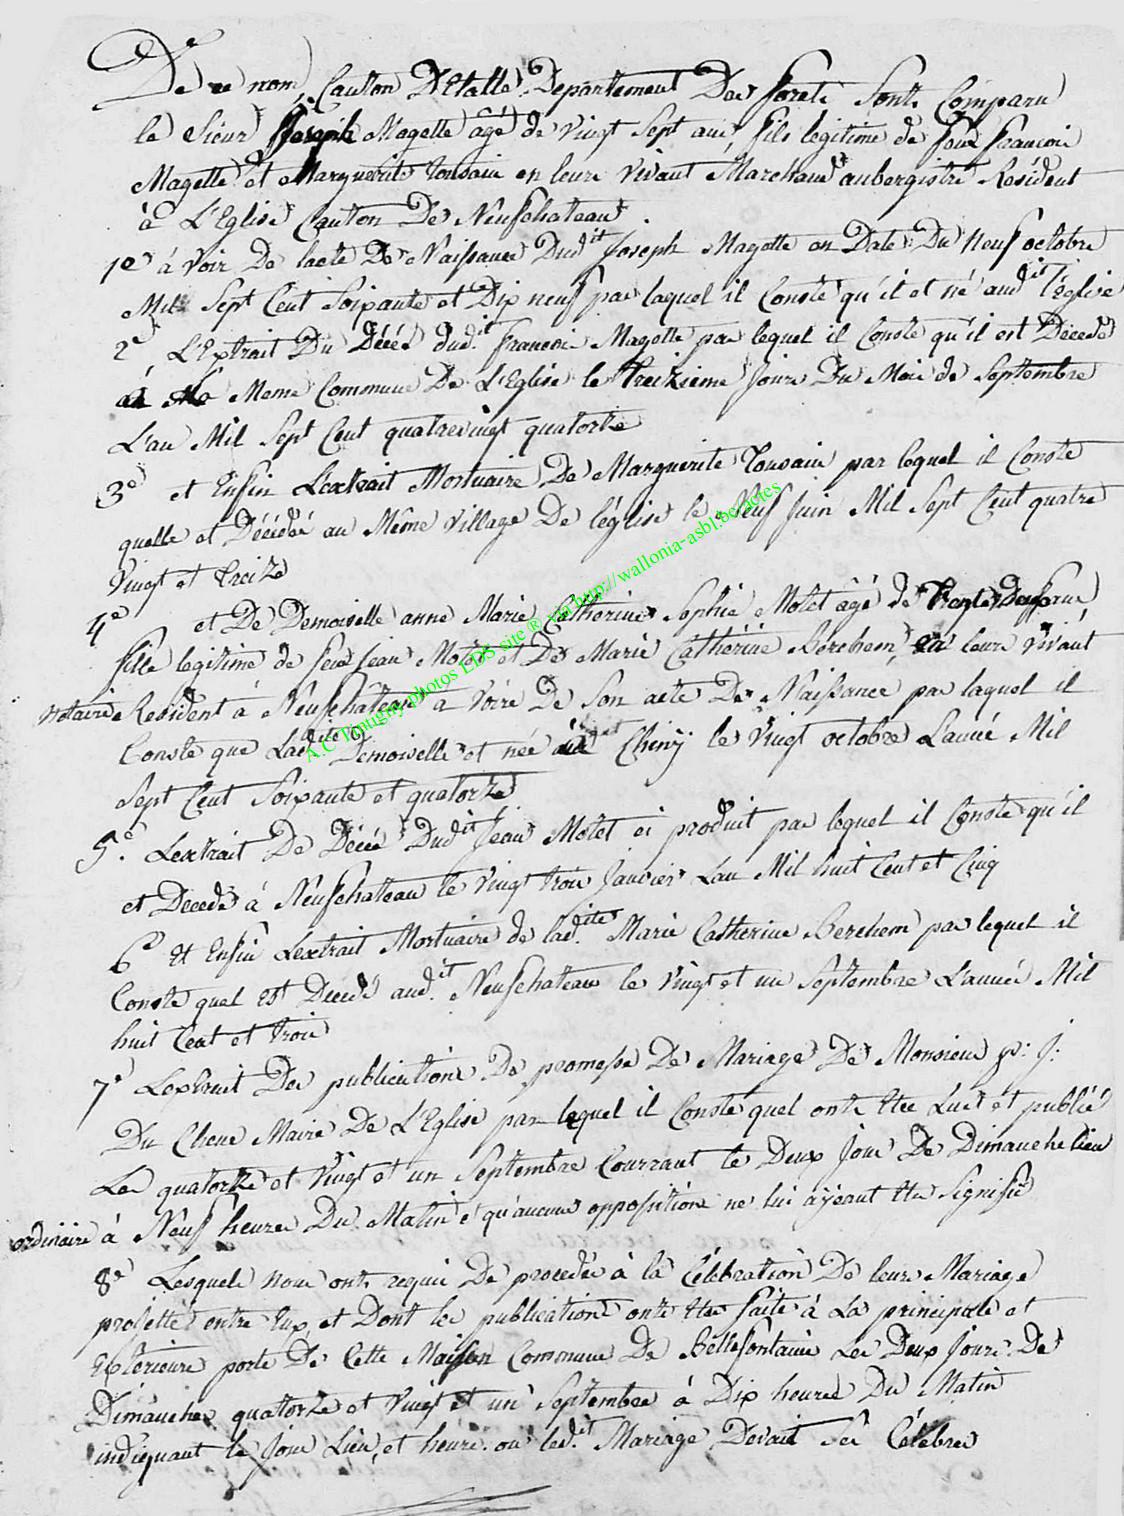 De ce nom, Canton D'Etalle Departement Des forets Sont Comparu
le Sieur Joseph Magette âgé de vingt Sept ans, fils legitime de feux francois
Magette et Marguerite Tousain en leurs vivant Marchand aubergiste Resident
à L'Eglise Canton De Neufchateau.
1e à voir De lacte De Naissance Dudit Joseph Magette en Date Du Neuf octobre
Mil Sept Cent Soixante et Dix neuf par laquel il Conste qu'il et né audit l'église
2e L'Extrait Du Décés dudit francois Magette par lequel il Conste qu'il est Décedé
Meme Commune De L'Eglise le treizieme Jour Du Mois de Septembre
L'an Mil Sept Cent quatrevingt quatorze
3e et Enfin Lextrait Mortuaire De Marguerite Tousain par lequel il Conste
quelle et Décédée au Même village De l'église le Neuf Juin Mil Sept Cent quatre
Vingt et treize
4e et De Demoiselle anne Marie Catherine Sophie Motet âgé de trente deux ans,
fille legitime de feux Jean Motet et De Marie Catherine Berchem, en leurs vivant
notaire Resident à Neufchateau à Voire De Son acte De Naissance par laquel il
Conste que Ladite Demoiselle et née Chiny le Vingt octobre Lannée Mil
Sept Cent Soixante et quatorze
5e. Lextrait De Décés Dudit Jean Motet ci produit par lequel il Conste qu'il
et Décedé à Neufchateau le Vingt trois Janvier Lan Mil huit Cent et Cinq
6e Et Enfin Lextrait Mortuaire de ladite Marie Catherine Berchem par lequel il
Conste quel est Décedé audit Neufchateau le Vingt et un Septembre Lannée Mil
huit Cent et trois
7e Lextrait Des publications De promesse De Mariage De Monsieur p: J:
Du Chene Maire De L'Eglise par lequel il Conste quel onts Etee Lues et publié
Les quatorze et Vingt et un Septembre Courrant le Deux Jour De Dimanche lieu
ordinaire à Neuf heures Du Matin e qu'aucune opposition ne lui ayeant Ete Signifié
8e Lesquels nous onts requis De proceder à la Célebration De leurs Mariage
projetté entre Eux et Dont les publications onts Ete faite à La principale et
Exterieure porte De Cette Maison Commune De Bellefontaine Les Deux Jours De
Dimanches quatorze et Vingt et un Septembre à Dix heures Du Matin
indiquant le Jour Lieu, et heure ou ledit Mariage Devait Se Célébrer
A.C Tintigny photos EDS site ® via http://wallonia-asbl.be/actes